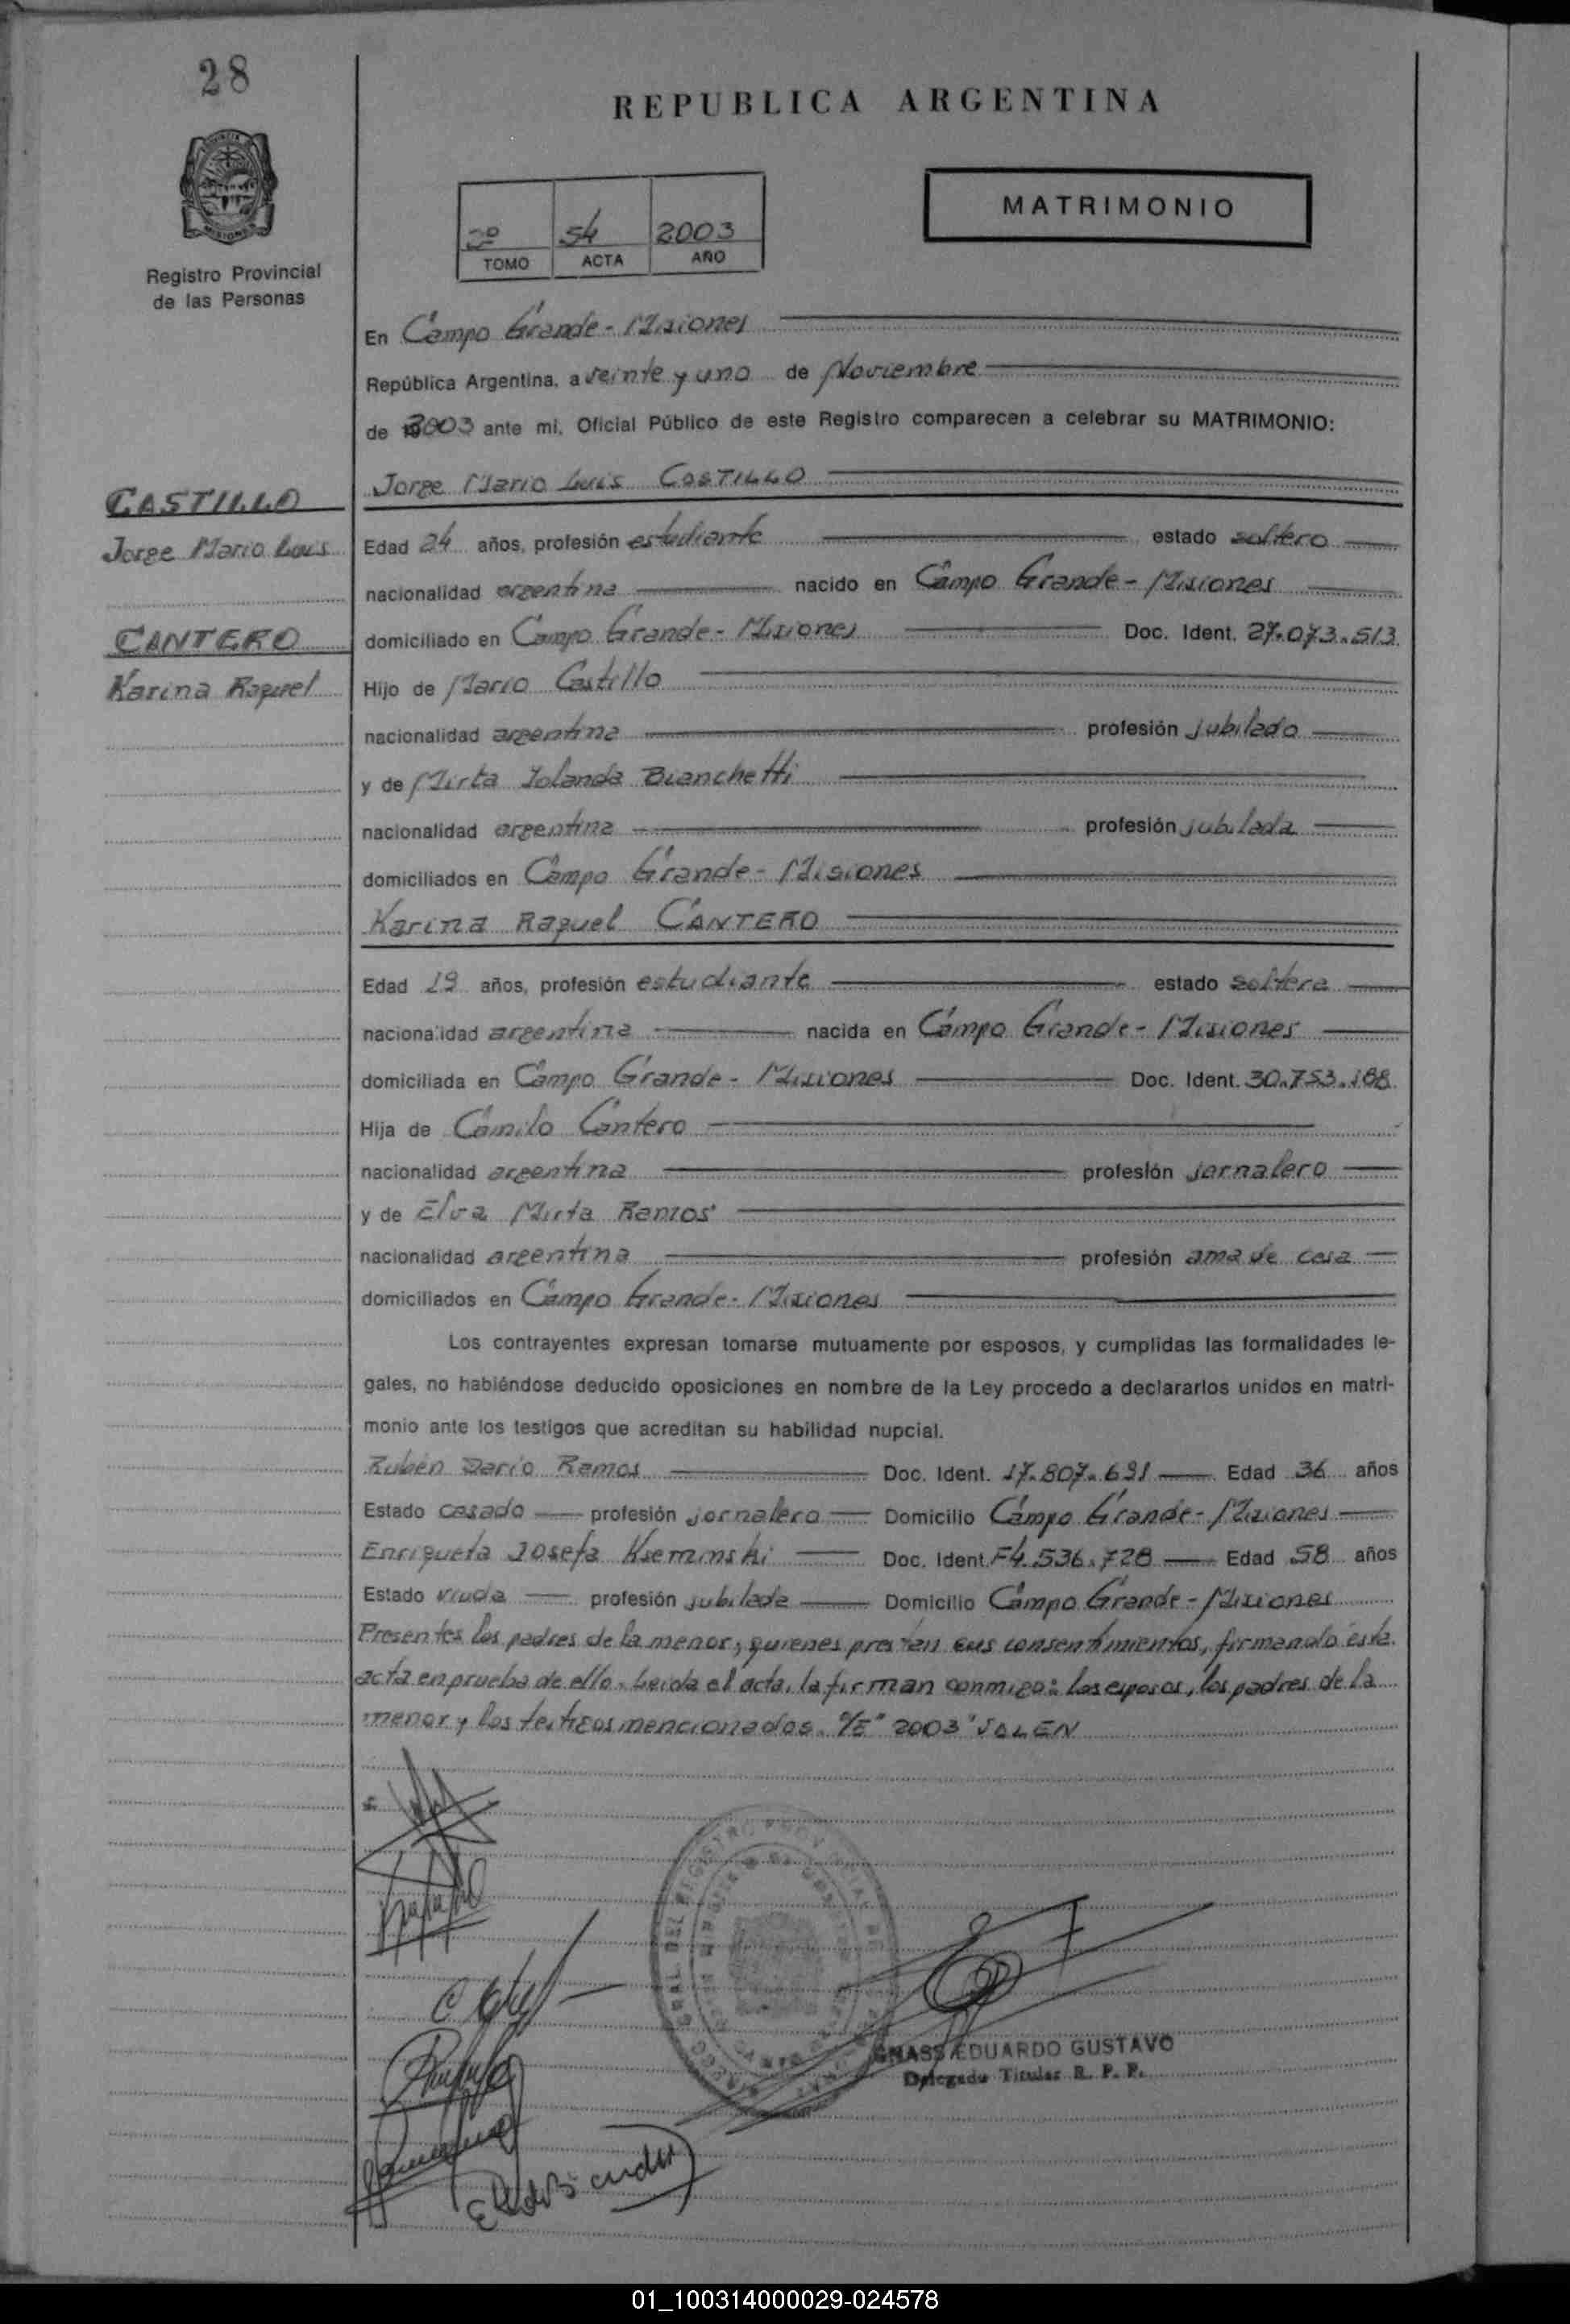 28
REPUBLICA ARGENTINA
MATRIMONIO
54 2003
TOMO ACTA AÑO
Registro Provincial
de las Personas
En Campo Grande - Misiones
República Argentina, a veinte y uno de Noviembre
de 2003 ante mi, Oficial Público de este Registro comparecen a celebrar su MATRIMONIO:
Jorge Mario Luis CASTILLO
CASTILLO
Jorge Mario Luis
Edad 24 años, profesión estudiante estado soltero
nacionalidad argentina nacido en Campo Grande - Misiones
CANTERO
domiciliado en Campo Grande - Misiones Doc. Ident. 27.073.513
Karina Raquel
Hijo de Mario Castillo
nacionalidad argentina profesión jubilado
y de Mirta Yolanda Bianchetti
nacionalidad argentina profesión jubilada
domiciliados en Campo Grande - Misiones
Karina Raquel CANTERO
Edad 19 años, profesión estudiante estado soltera
nacionalidad argentina nacida en Campo Grande - Misiones
domiciliada en Campo Grande - Misiones Doc. Ident. 30.753.188
Hija de Camilo Cantero
nacionalidad argentina profesión jornalero
y de Elva Mirta Ramos
nacionalidad argentina profesión ama de casa
domiciliados en Campo Grande - Misiones
Los contrayentes expresan tomarse mutuamente por esposos, y cumplidas las formalidades le-
gales, no habiéndose deducido oposiciones en nombre de la Ley procedo a declararlos unidos en matri-
monio ante los testigos que acreditan su habilidad nupcial.
Rubén Darío Ramos Doc. Ident. 17.807.691 Edad 36 años
Estado casado profesión jornalero Domicilio Campo Grande - Misiones
Enriqueta Josefa Kseminski Doc. Ident. F4.536.728 Edad 58 años
Estado viuda profesión jubilada Domicilio Campo Grande - Misiones
Presentes los padres de la menor, quienes prestan sus consentimientos, firmando ésta
acta en prueba de ello. Leida el acta, la firman conmigo: los esposos, los padres de la
menor y los testigos mencionados. S/E "2003" VALEN
GNASS EDUARDO GUSTAVO
Delegado Titular R. P. P.
01_100314000029-024578